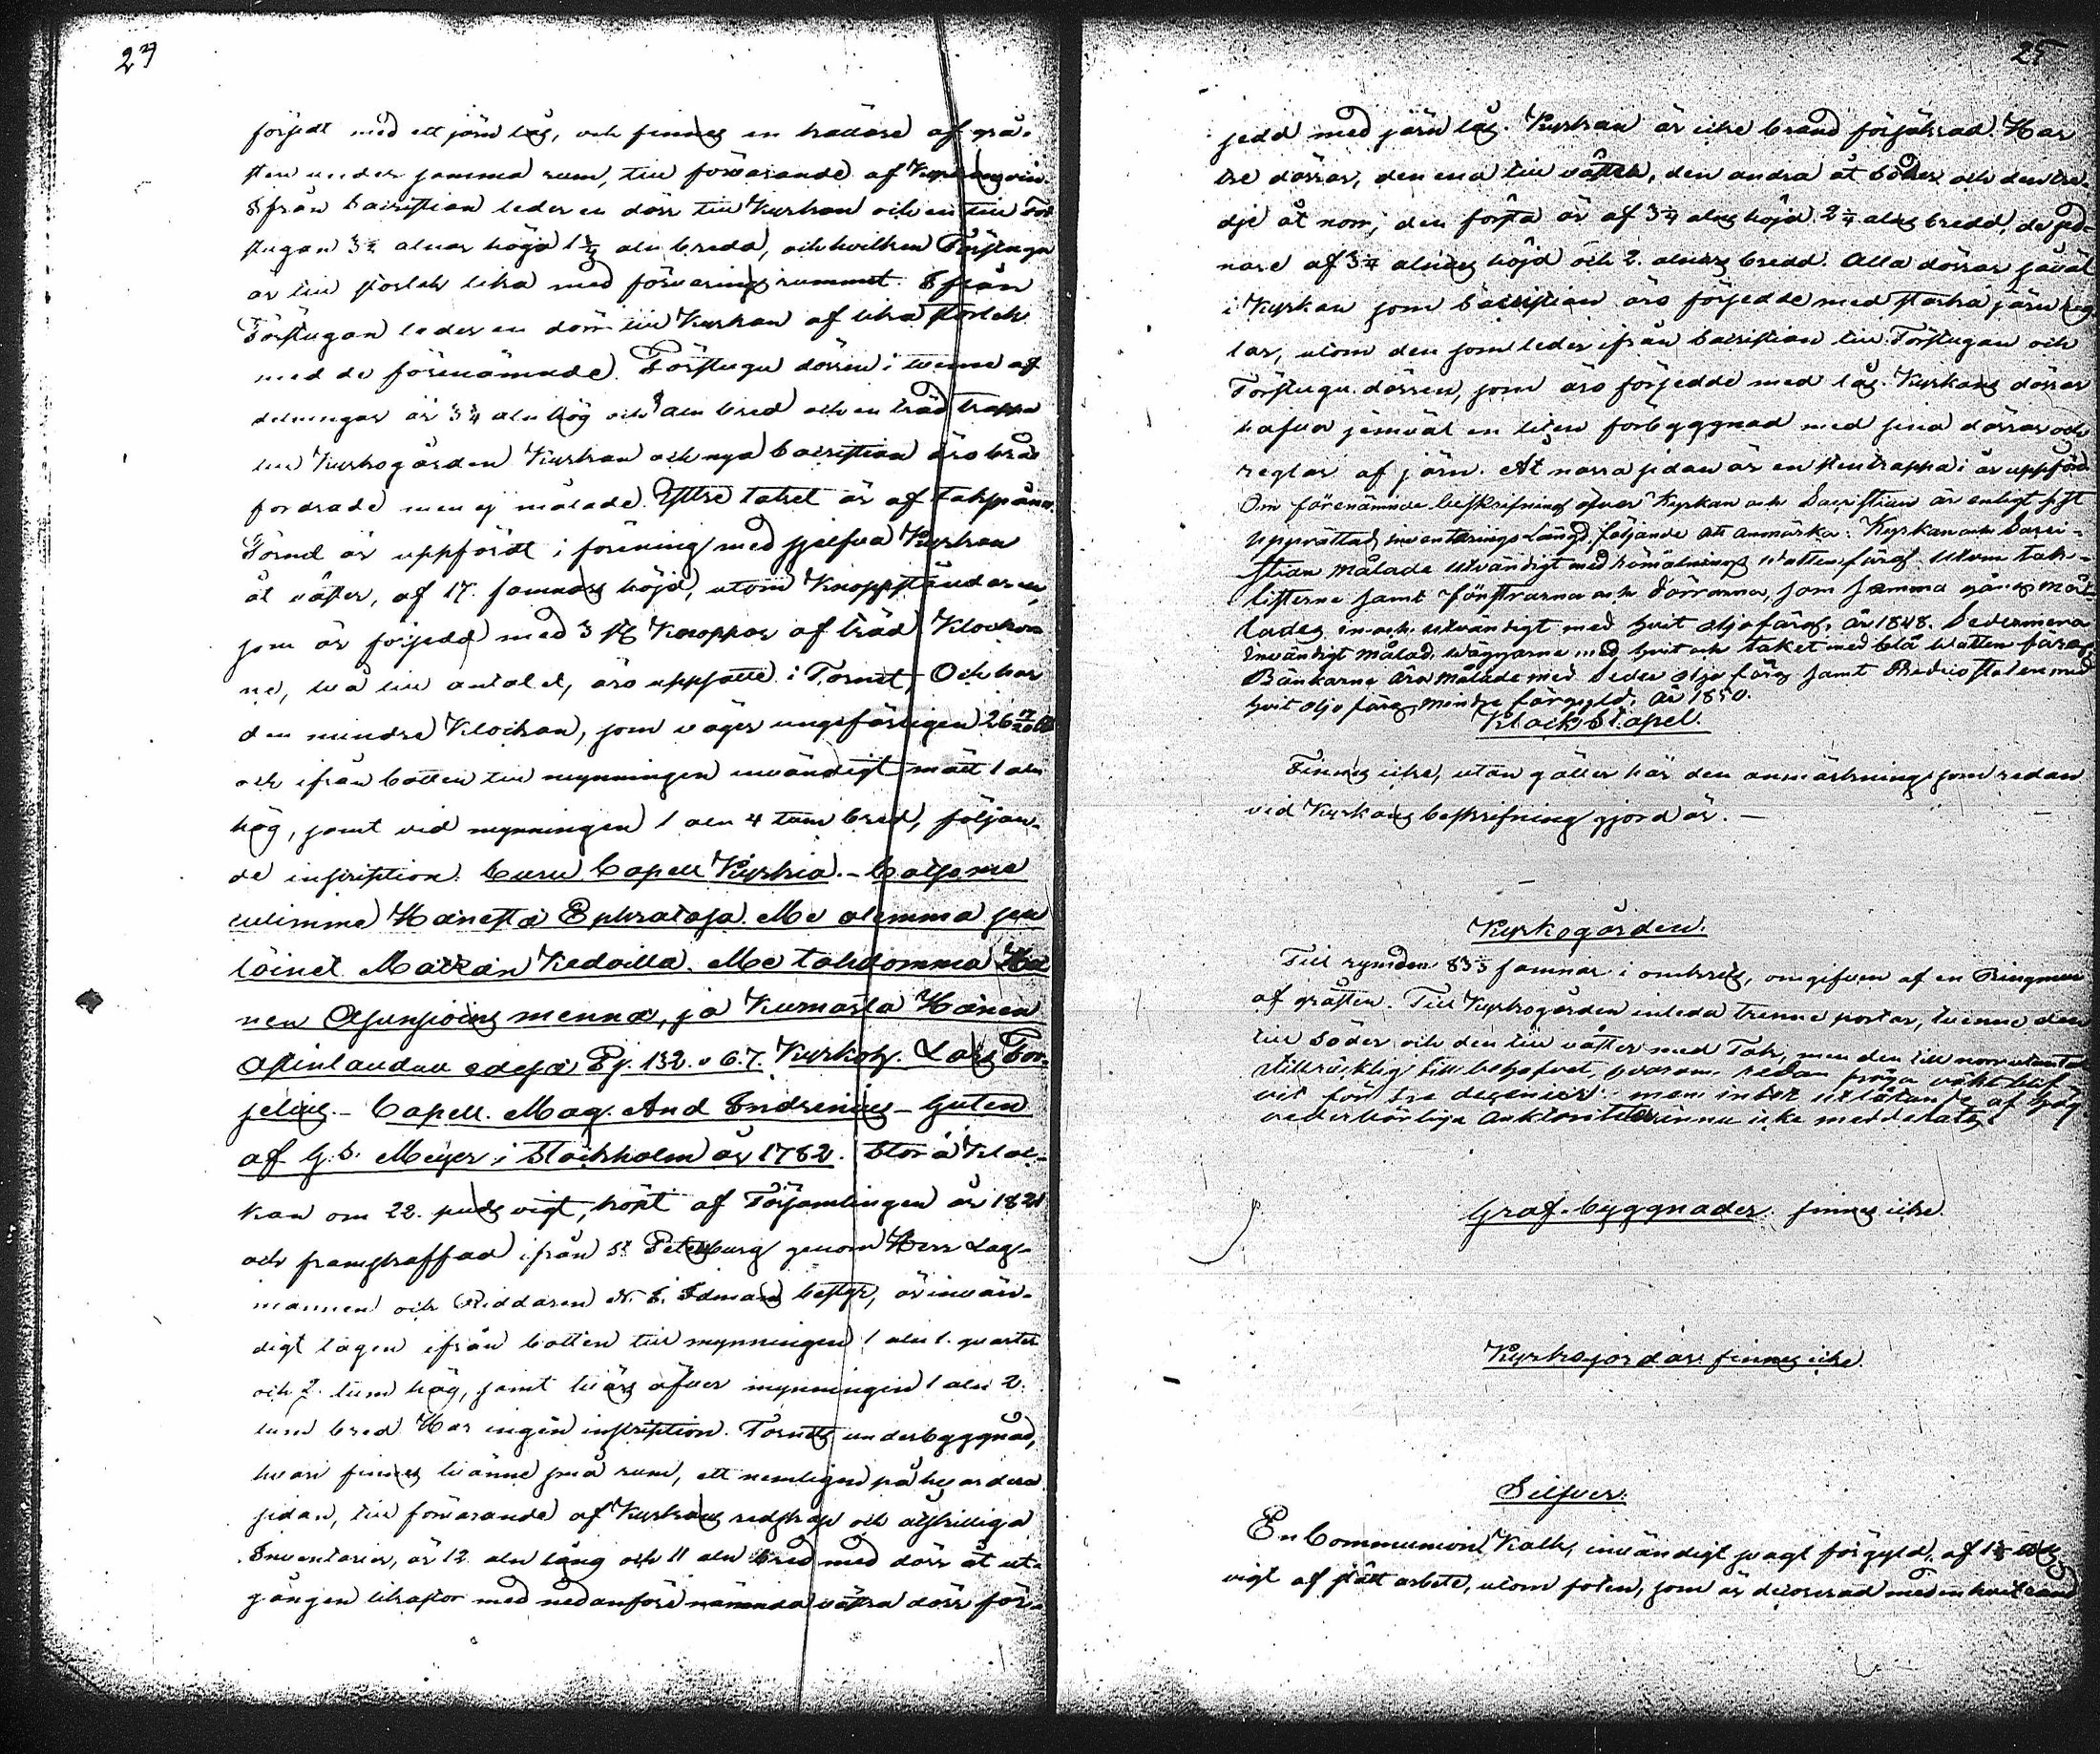 24
försedt med ett järn lås, och finnes en källare af grå-
sten under samma rum, till förvarande af Kyrkans vin.
Ifrån Sacristian leder en dörr till Kyrkan och en till För
stugan 3¼ alnar höga 1½ aln bredd, och hvilken Förstuga
är till storlek lika med förvaringsrummet. Ifrån
Förstugan leder en dörr till Kyrkan af lika storlek
med de förenämnde. Förstugu dörren i tvenne af
delningar är 3¼ aln hög och aln bred och en träd trappa
till Kyrkogården Kyrkan och nya Sacristian äro bräd
fordrade men ej målade. Yttre taket är af takspån.
Tornet är uppfördt i förening med sjelfva Kyrkan
åt väster, af 17. famnars höjd, utom Knoppständaren,
som är försedd med 3 st Knoppar af träd Klockor
ne, två till antalet, äro uppsatte i Tornet, Och har
den mindre Klockan, som väger ungefärligen 26
och ifrån botten till mynningen invändigt mätt 1 aln
hög, samt vid mynningen 1 aln 4 tum bred, följan-
de inscription. Curu Capell Kyrkia. - Catso me
cuulimma Hänestä Ephratasa. Me olemma sen
löinet Mätzän Kedoilla. Me tahdomma Hä
nen Asunsioins mennä, ja Kumarta Hänen
Astinlaudan edesä Ps. 132. v 6.7. Kyrkoh. Lars For-
selius - Capell. Mag. And Indrenius - Guten
af G. S. Meijer i Stockholm år 1782. Stora Kloc-
kan om 22. puds vigt, köpt af Församlingen år 1821
och framskaffad ifrån St Petersburg genom Herr Lag-
mannen och Riddaren N. G. Idmans bestyr, är invän-
digt tagen ifrån botten till mynningen 1 aln 1. quarter
och 2. tum hög, samt tvärs öfver mynningen 1 aln 2.
tum bred. Har ingen inscription. Tornets underbyggnad,
hvari finnes tvänne små rum, ett nemligen på hvardera
sidan, till förvarande af Kyrkans redskap och åtskilliga
Inventarier, är 12 aln lång och 11 aln bred med dörr åt ut-
gången lika stor med nedanföre nämnda västra dörr för-
25
sedd med järn lås. Kyrkan är icke brand försäkrad. Har
tre dörrar, den ena till väster, den andra åt söder och den tre-
dje åt norr; den första är af 3¼ alns höjd 2¼ alns bredd, de sed
nare af 3¼ alnars höjd och 2. alnars bredd. Alla dörrar såväl
i Kyrkan som Sacristian äro försedde med starka järn reg
lar, utom den som leder ifrån Sacristian till Förstugan och
Förstugu dörren, som äro försedde med lås. Kyrkans dörrar
hafva jemväl en liten förbyggnad med sina dörrar och
reglar af järn. Åt norra sidan är en stentrappa i år uppförd.
Om förenämnde beskrifning öfver Kyrkan och Sacristian är enligt sist
upprättad inventarings Längd, följande att anmärka: Kyrkan och Sacri-
stian målade utvändigt med rödmålnings Vattenfärg. Utom tak-
listerne samt fönstrarna och dörrarna, som samma gång må-
lades in och utvändigt med hvit oljefärg. år 1848. Sedermera
Invändigt målad, väggarne med hvit och taket med blå Vatten färg
Bänkarne äro målade med Seder olje färg samt Predicstolen med
hvit olje färg, mindre förgyld. år 1850.
Klock Stapel.
Finnes icke, utan gäller här den anmärkning som redan
vid Kyrkans beskrifning gjord är. -
Kyrkogården.
Till rymden 83⅓ famnar i omkrets, omgifven af en Ringmur
af gråsten. Till Kyrkogården inleda trenne portar, tvenne den
till söder och den till väster med Tak, men den till norr utan tak
tillräcklig till behofvet, hvarom redan fråga väkt blif
vit för tre decenier men intet utlåtande af hög
vederbörliga Auktoriteter ännu icke meddelats.
Graf-byggnader finnes icke.
Kyrkojordar finnes icke.
Silfver.
En Communion Kalk, invändigt svagt förgyld, af 1⅜
vigt af slätt arbete, utom foten, som är decorerad med en hvit rand